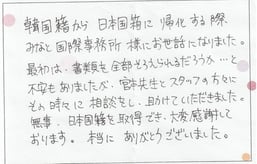 韓国籍から日本国籍に帰化する際
みなと国際事務所様にお世話になりました。
最初は、書類を全部そろえられるだろうか…と
不安もありましたが、宮本先生とスタッフの方々に
その時々に相談をし、助けていただきました。
無事、日本国籍を取得でき、大変感謝して
おります。本当にありがとうございました。